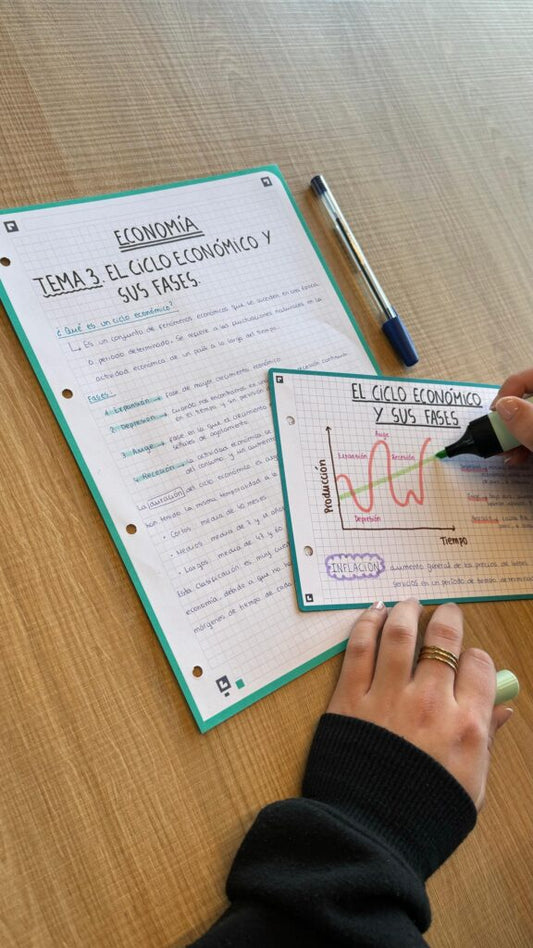 ECONOMÍA
TEMA 3. EL CICLO ECONÓMICO Y
SUS FASES.
¿Qué es un ciclo económico?
Es un conjunto de fenómenos económicos que se suceden en una época
o periodo determinado. Se refiere a las fluctuaciones naturales en la
actividad económica de un país a lo largo del tiempo.
Fases:
1. Expansión → fase de mayor crecimiento económico
2. Depresión → cuando nos encontramos en un
en el tiempo y sin previsión
3. Auge → fase en la que el crecimiento
señales de agotamiento.
4. Recesión → la actividad económica
del consumo y un aumento
La duración del ciclo económico es
han tenido la misma temporalidad a
• Cortos: media de 40 meses.
• Medios: media de 7 y
• Largos: media de 47 y 60
Esta clasificación es muy
economía, debido a que no
márgenes de tiempo de cada
EL CICLO ECONÓMICO
Y SUS FASES
Producción
Auge
Expansión
Recesión
Depresión
Tiempo
INFLACIÓN: aumento general de los precios de bienes
servicios en un periodo de tiempo determinado